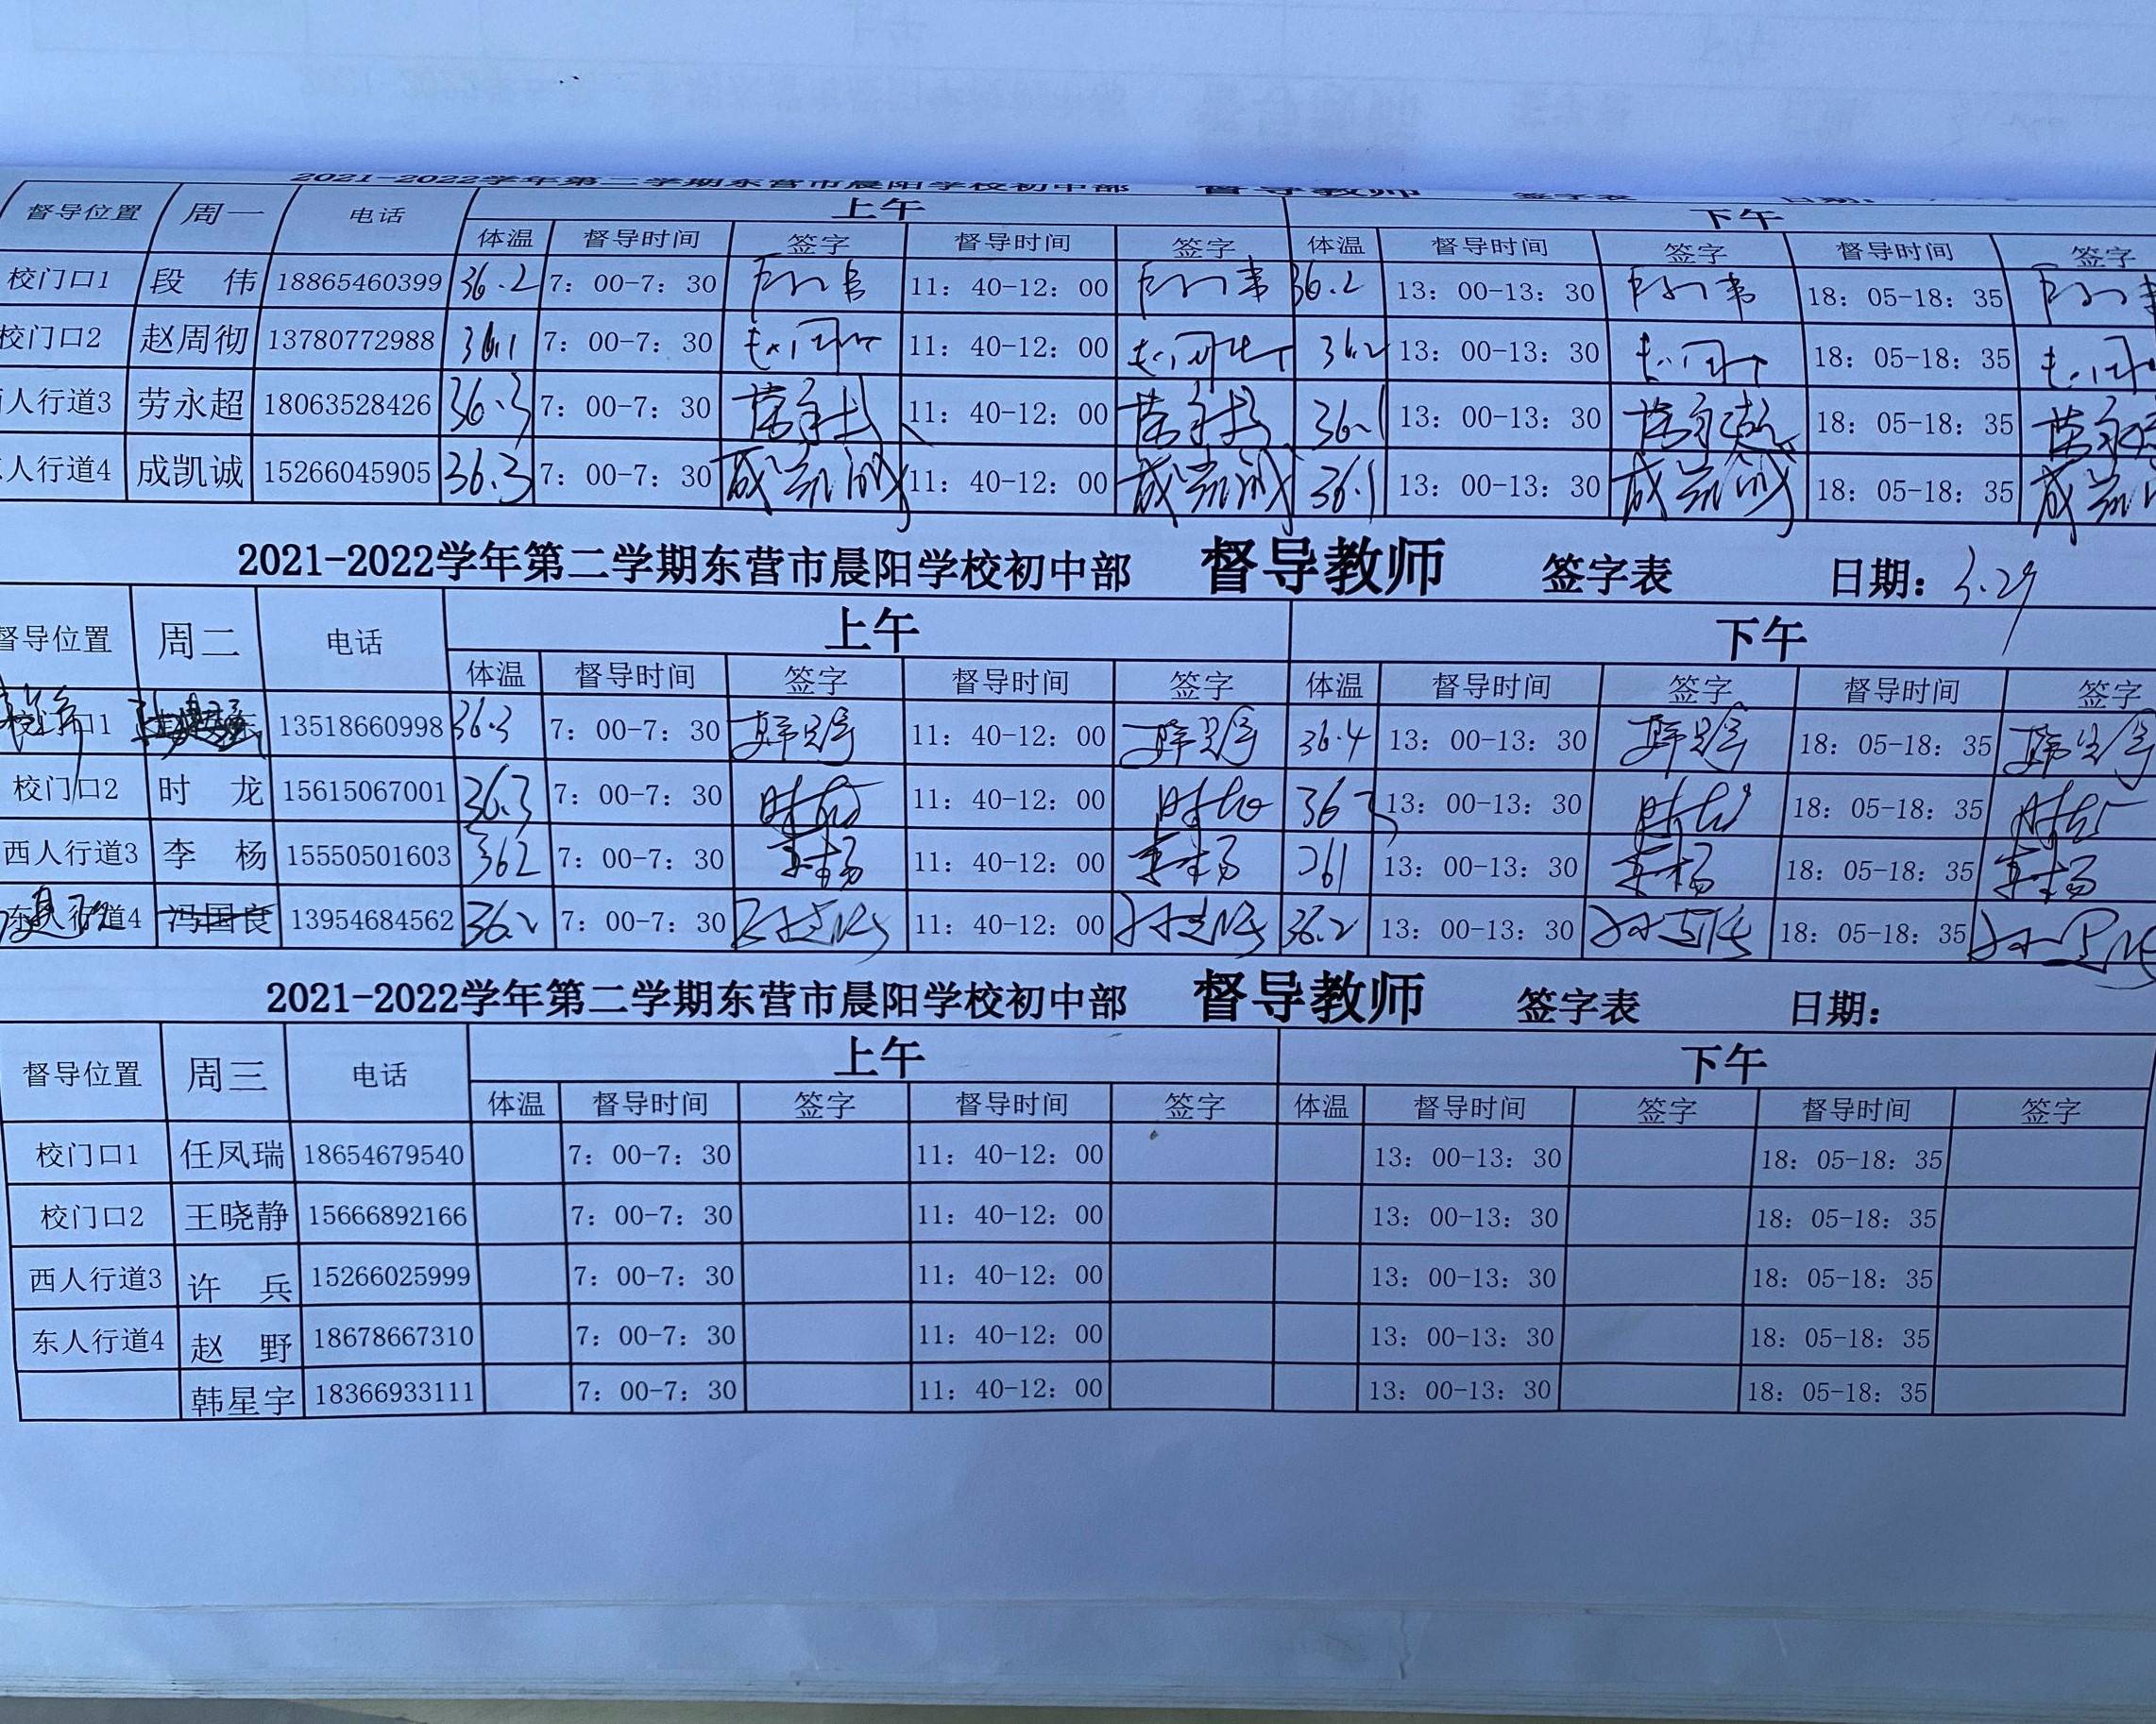 2021-2022学年第二学期东营市晨阳学校初中部 督导教师 签字表 日期:
督导位置 周一 电话 上午 下午
体温 督导时间 签字 督导时间 签字 体温 督导时间 签字 督导时间 签字
校门口1 段 伟 18865460399 36.2 7: 00-7: 30 11: 40-12: 00 36.2 13: 00-13: 30 18: 05-18: 35
校门口2 赵周彻 13780772988 36.1 7: 00-7: 30 11: 40-12: 00 36.2 13: 00-13: 30 18: 05-18: 35
人行道3 劳永超 18063528426 36.3 7: 00-7: 30 11: 40-12: 00 36.1 13: 00-13: 30 18: 05-18: 35
人行道4 成凯诚 15266045905 36.3 7: 00-7: 30 成凯诚 11: 40-12: 00 成凯诚 36.1 13: 00-13: 30 成凯诚 18: 05-18: 35
2021-2022学年第二学期东营市晨阳学校初中部 督导教师 签字表 日期: 3.29
督导位置 周二 电话 上午 下午
体温 督导时间 签字 督导时间 签字 体温 督导时间 签字 督导时间 签字
校门口1 13518660998 36.3 7: 00-7: 30 韩星宇 11: 40-12: 00 韩星宇 36.4 13: 00-13: 30 韩星宇 18: 05-18: 35 韩星宇
校门口2 时 龙 15615067001 36.3 7: 00-7: 30 时龙 11: 40-12: 00 时龙 36 13: 00-13: 30 时龙 18: 05-18: 35 时龙
西人行道3 李 杨 15550501603 362 7: 00-7: 30 李杨 11: 40-12: 00 李杨 361 13: 00-13: 30 李杨 18: 05-18: 35 李杨
东人行道4 冯国良 13954684562 36.2 7: 00-7: 30 11: 40-12: 00 36.2 13: 00-13: 30 18: 05-18: 35
2021-2022学年第二学期东营市晨阳学校初中部 督导教师 签字表 日期:
督导位置 周三 电话 上午 下午
体温 督导时间 签字 督导时间 签字 体温 督导时间 签字 督导时间 签字
校门口1 任凤瑞 18654679540 7: 00-7: 30 11: 40-12: 00 13: 00-13: 30 18: 05-18: 35
校门口2 王晓静 15666892166 7: 00-7: 30 11: 40-12: 00 13: 00-13: 30 18: 05-18: 35
西人行道3 许 兵 15266025999 7: 00-7: 30 11: 40-12: 00 13: 00-13: 30 18: 05-18: 35
东人行道4 赵 野 18678667310 7: 00-7: 30 11: 40-12: 00 13: 00-13: 30 18: 05-18: 35
韩星宇 18366933111 7: 00-7: 30 11: 40-12: 00 13: 00-13: 30 18: 05-18: 35